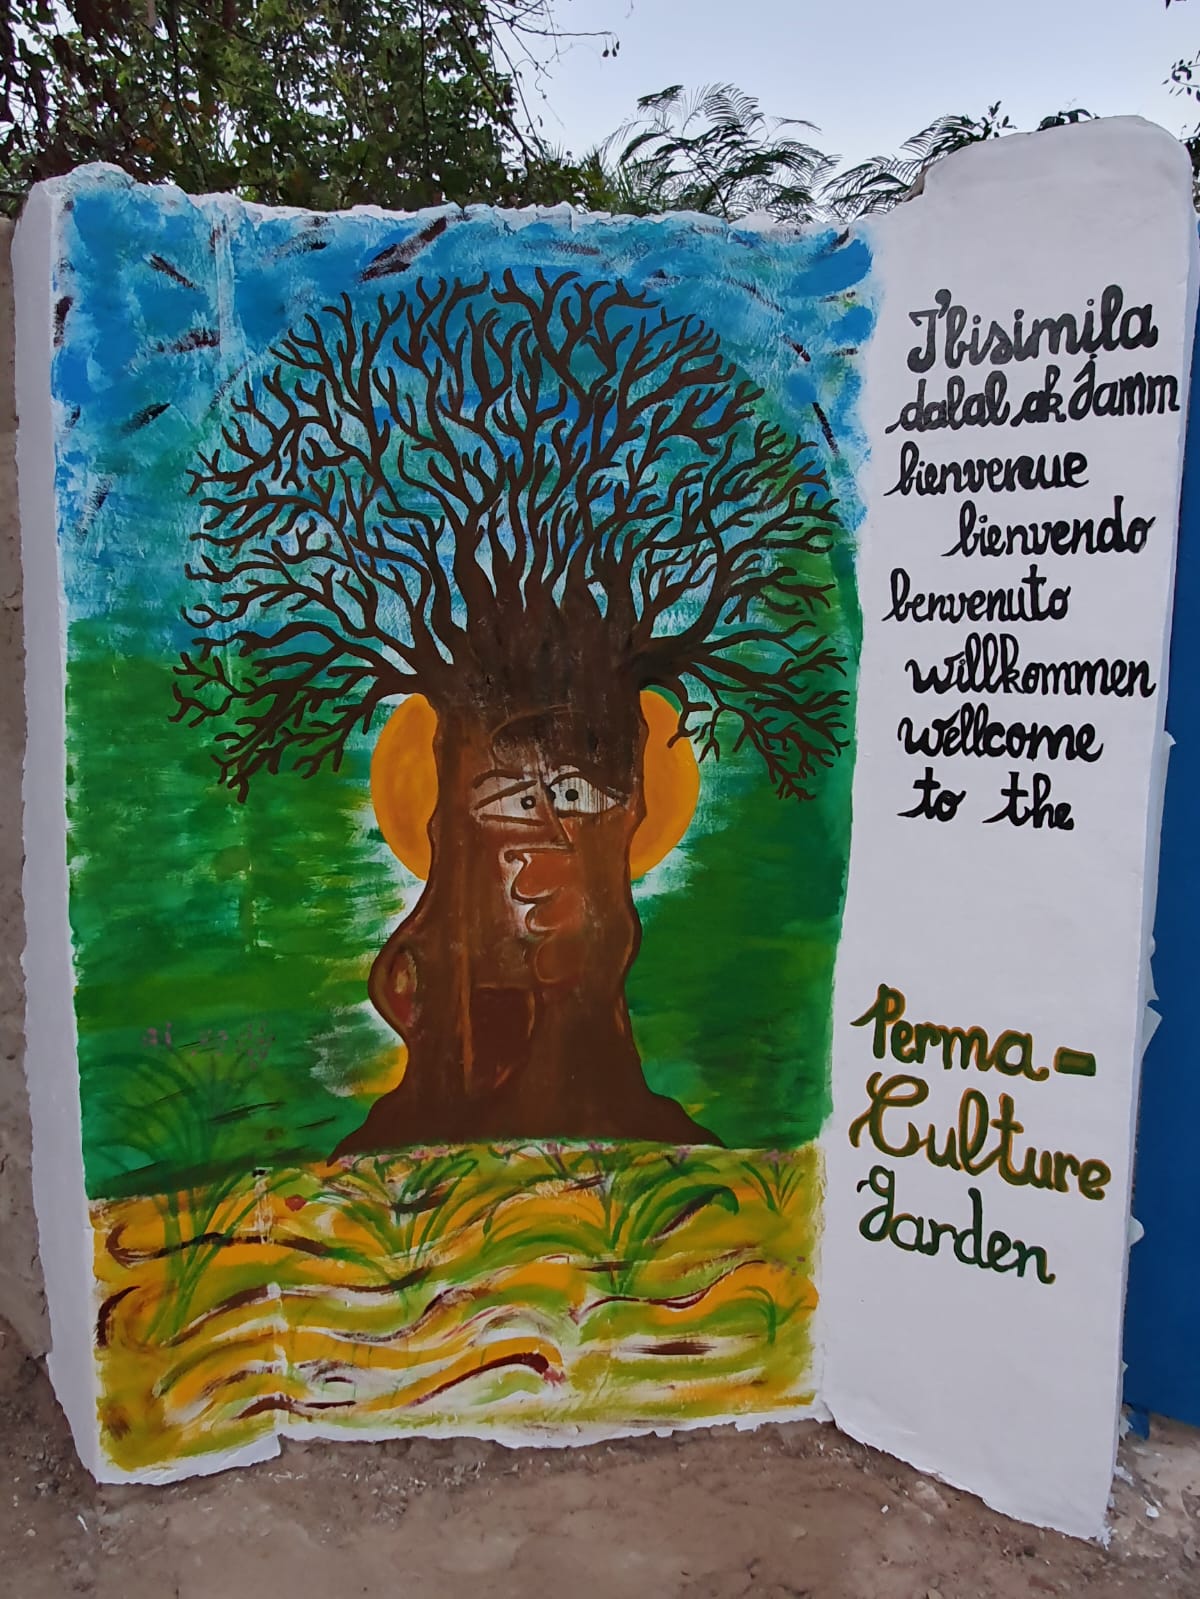 J'bisimila
dalal ak Jamm
bienvenue
bienvendo
benvenuto
willkommen
wellcome
to the
Perma-
Culture
Garden